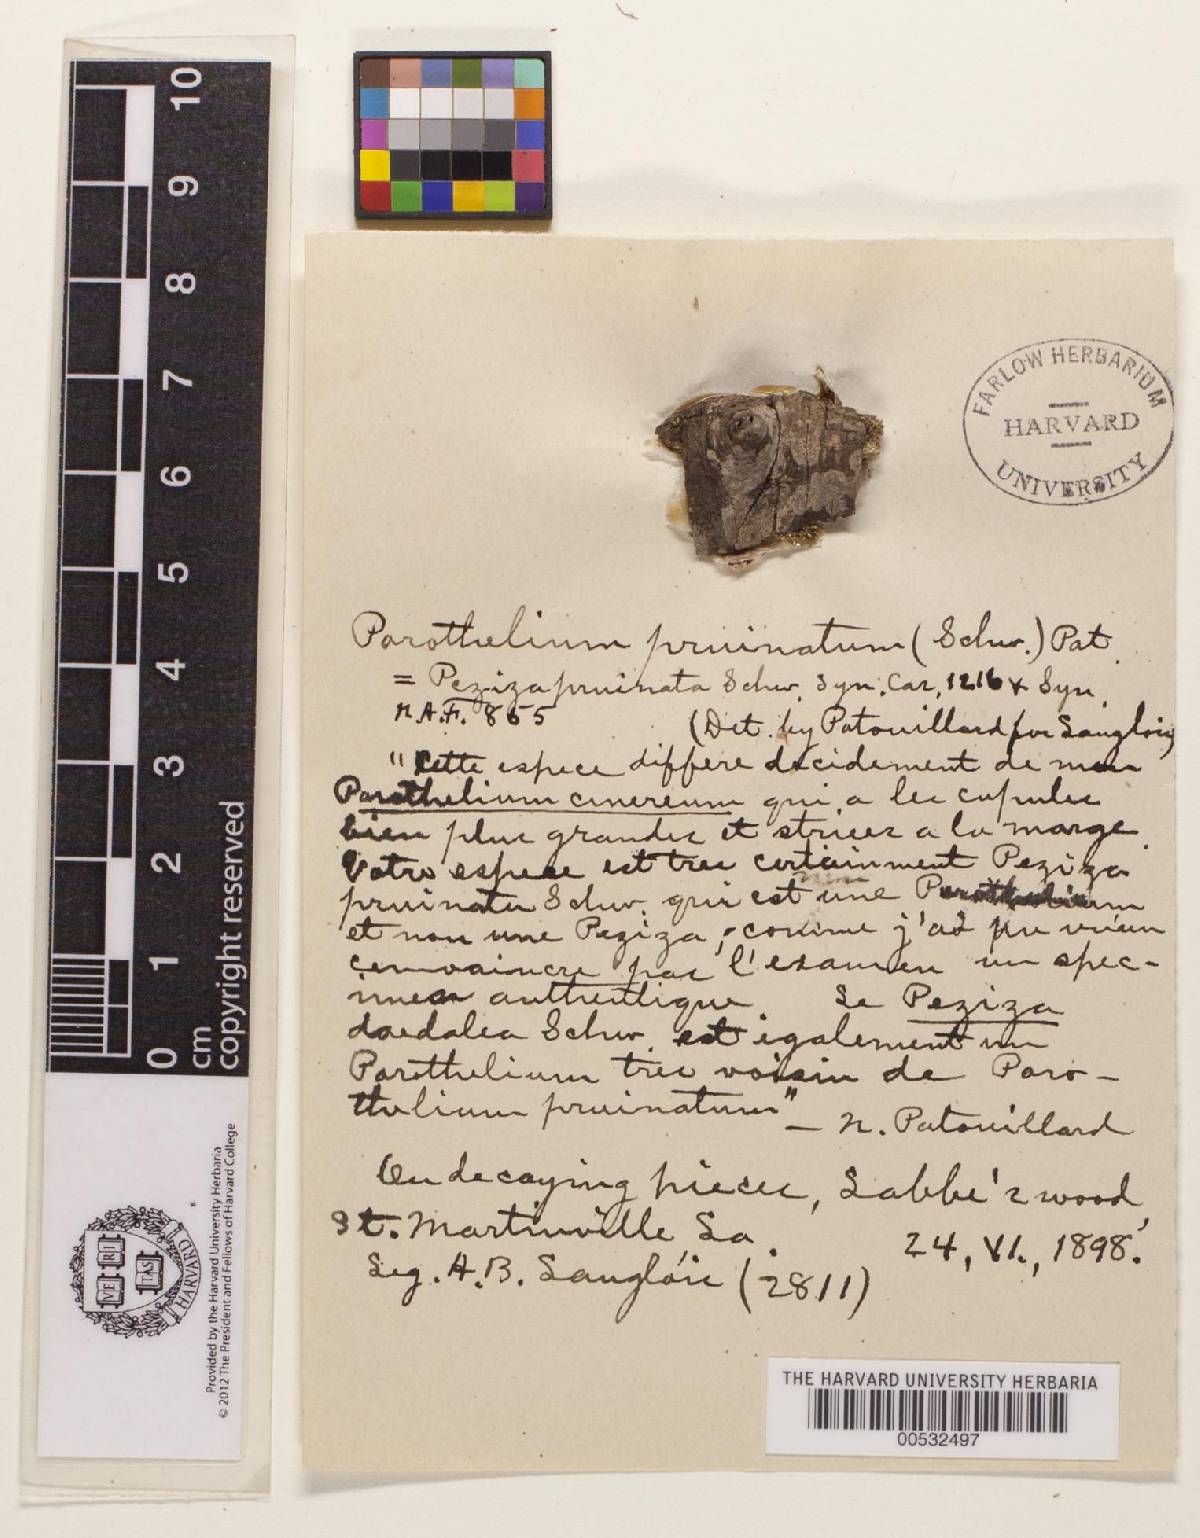 10
9
8
7
6
5
4
3
2
1
0
cm
copyright reserved
Provided by the Harvard University Herbaria
© 2012 The President and Fellows of Harvard College
VE RI TAS
HARVARD
FARLOW HERBARIUM
HARVARD
UNIVERSITY
Porothelium pruinatum (Schw.) Pat.
= Peziza pruinata Schw. Syn. Car. 1216 & Syn.
N.A.F. 855
(Det. by Patouillard for Langlois)
"Cette espece differe decidement de mon
Porothelium cinereum qui a les cupules
bien plus grandes et striees a la marge.
Votre espece est tres certainment Peziza
pruinata Schw. qui est une Porothelium
et non une Peziza, comme j'ai pu m'en
convaincre par l'examen un spec-
imen authentique. Le Peziza
daedalea Schw. est egalement un
Porothelium tres voisin de Poro-
thelium pruinatum"
— N. Patouillard
On decaying pieces, Labbe's wood,
St. Martinville La. 24, VI., 1898.
Leg. A.B. Langlois (2811)
THE HARVARD UNIVERSITY HERBARIA
00532497